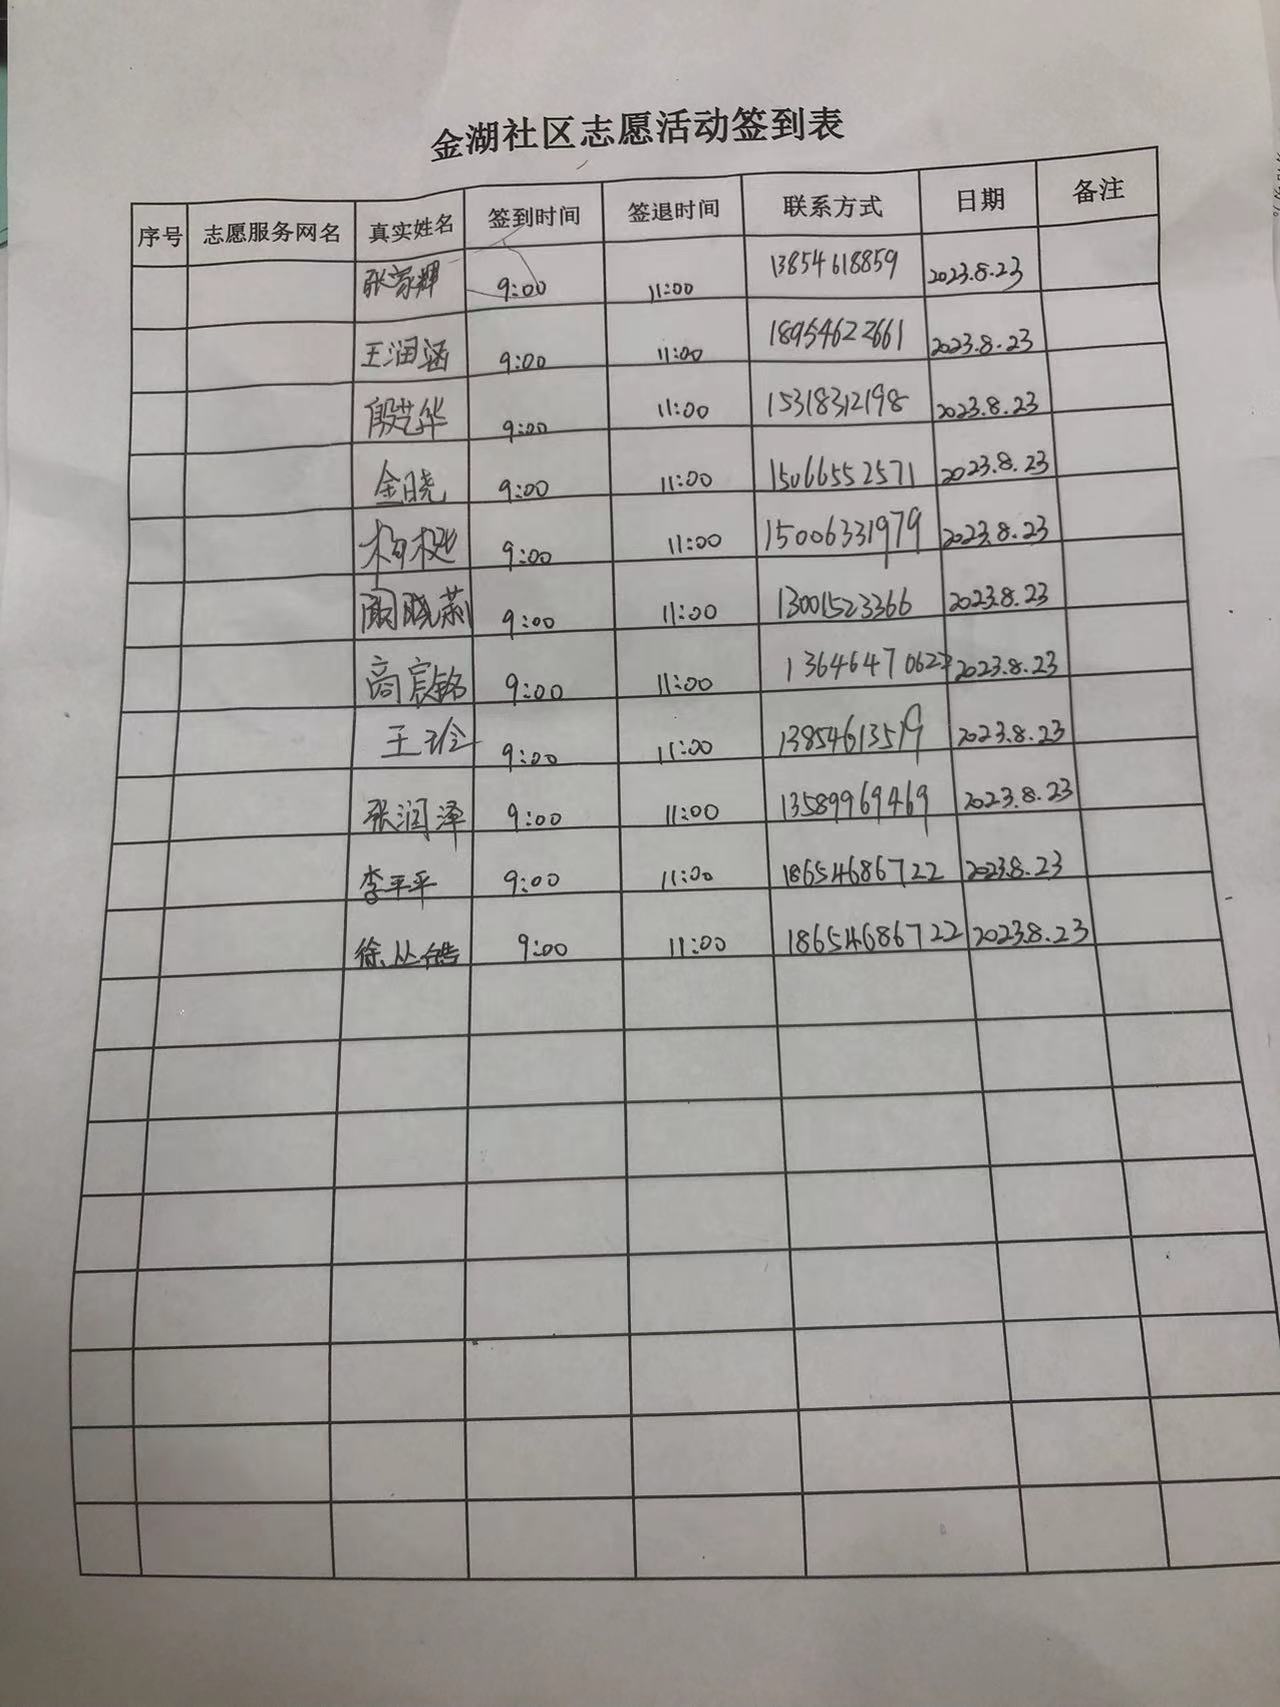 金湖社区志愿活动签到表
序号 志愿服务网名 真实姓名 签到时间 签退时间 联系方式 日期 备注
张家辉 9:00 11:00 13854618859 2023.8.23
王润涵 9:00 11:00 18954622661 2023.8.23
殷艺华 9:00 11:00 15318312198 2023.8.23
金晓 9:00 11:00 15066552571 2023.8.23
9:00 11:00 15006331979 2023.8.23
晓燕 9:00 11:00 13001523366 2023.8.23
高宸铭 9:00 11:00 2023.8.23
王玲 9:00 11:00 13854613519 2023.8.23
张润泽 9:00 11:00 13589969469 2023.8.23
李平平 9:00 11:00 18654686722 2023.8.23
徐 9:00 11:00 18654686722 2023.8.23